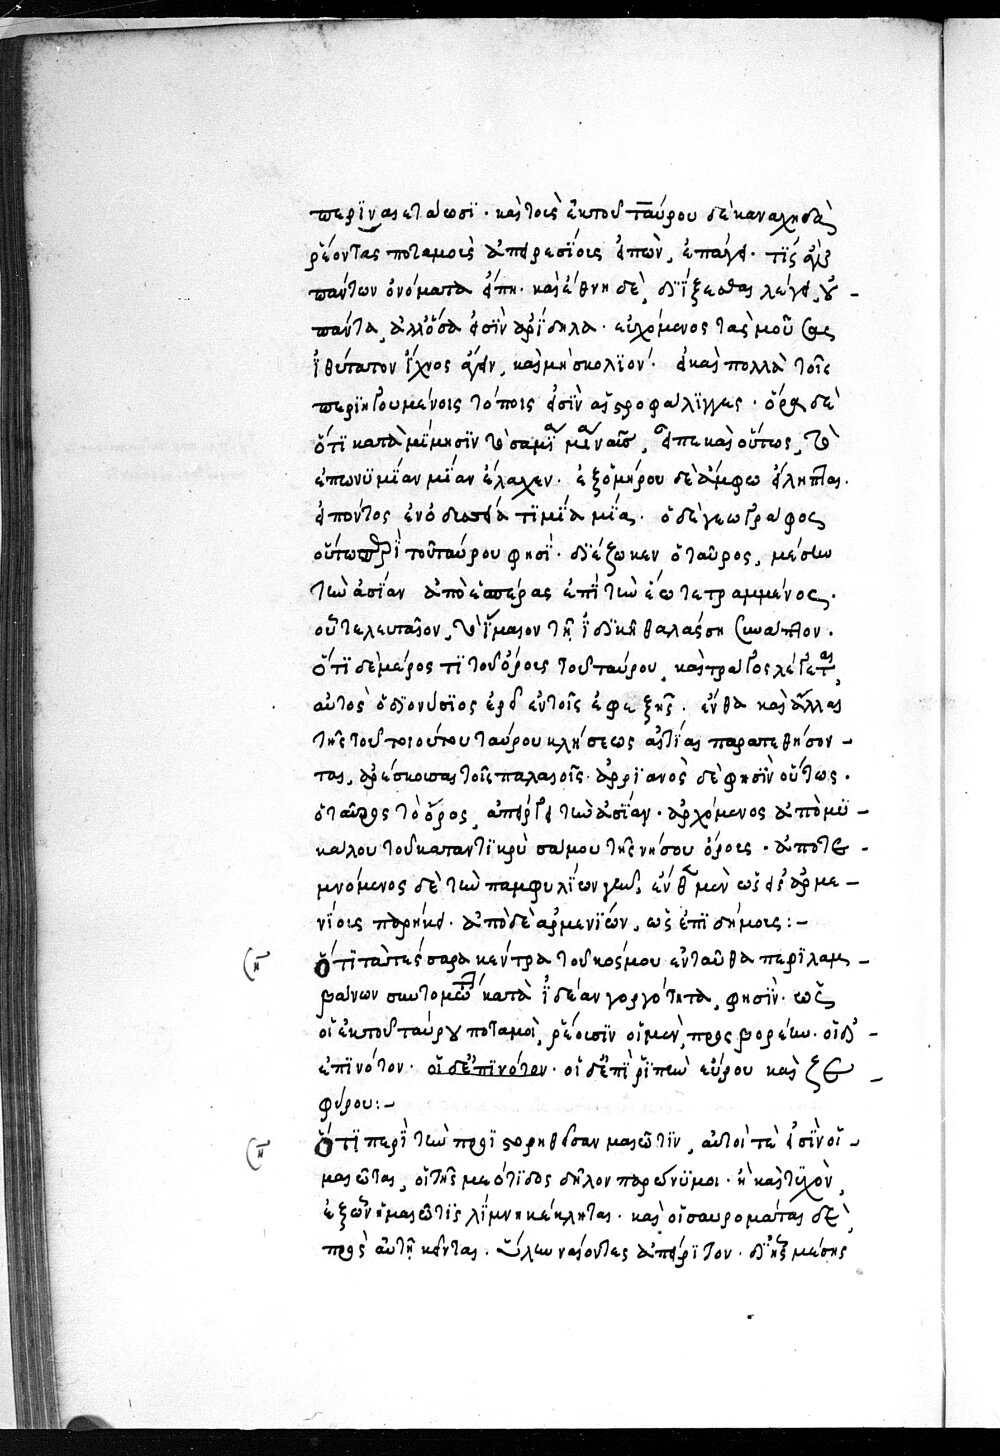 περιναιεταωσι· καὶ τοὺς ἐκ τοῦ ταύρου δὲ καναχηδὰ
ῥέοντας ποταμοὺς ἀπειρεσίους εἰπὼν, ἐπάγει· τίς ἂν
πάντων ὀνόματα εἴποι· καὶ ἔθνη δὲ διΐξεσθαι λέγει, οὐ
πάντα, ἀλλ' ὅσα εἰσὶν ἀρίδηλα· εὐχόμενος τὰς μούσας
ἰθύτατον ἴχνος ἄγειν, καὶ μὴ σκολιόν· εἰ καὶ πολλαὶ τοῖς
περιηγουμένοις τόποις εἰσὶν αἱ στροφάλιγγες· ὅρα δὲ
ὅτι κατὰ μίμησιν τοῦ
ἐπωνυμίαν μίαν ἔλαχεν· ἐξ ὁμήρου δὲ ἄμφω εἴληπται·
εἰπόντος ἐν ὀδυσσείᾳ τιμία μία· ὁ δὲ γεωγράφος
οὕτω περὶ τοῦ ταύρου φησί· διέζωκεν ὁ ταῦρος, μέσην
τὴν ἀσίαν ἀπὸ ἑσπέρας ἐπὶ τὴν ἕω τετραμμένος·
οὗ τελευταῖον, τὸ ἴμαιον τῇ ἰνδικῇ θαλάσσῃ συνάπτον·
ὅτι δὲ μέρος τι τοῦ ὄρους τοῦ ταύρου, καὶ τράγος λέγεται,
αὐτὸς ὁ διονύσιος ἐρεῖ ἐν τοῖς ἐφεξῆς· ἔνθα καὶ ἄλλαι
τῆς τοῦ τοιούτου ταύρου κλήσεως αἰτίαι παρατεθήσον-
ται, ἀρέσκουσαι τοῖς παλαιοῖς· ἀρριανὸς δὲ φησὶν οὕτως·
ὁ ταῦρος τὸ ὄρος, ἀπείργει τὴν ἀσίαν· ἀρχόμενος ἀπὸ μυ-
κάλου τοῦ καταντικρὺ σάμου τῆς νήσου ὄρους· ἀποτε-
μνόμενος δὲ τὴν παμφυλίων γῆν, ἔνθεν μὲν ὡς εἰς ἀρμε-
νίους παρήκει· ἀπὸ δὲ ἀρμενίων, ὡς ἐπὶ δήμους:-
Ὅτι τὰ τέσσαρα κέντρα τοῦ κόσμου ἐνταῦθα περιλαμ-
βάνων συντόμως κατὰ ἰδέαν γοργότητα, φησὶν· ὡς
οἱ ἐκ τοῦ ταύρου ποταμοὶ, ῥέουσιν οἱ μὲν, πρὸς βορέην· οἱ δ' -
ἐπὶ νότον· οἱ δ' ἐπὶ νότον· οἱ δ' ἐπὶ ῥιπὴν εὔρου καὶ ζε-
φύρου:-
Ὅτι περὶ τῶν προϊστορηθεισῶν μαιῶτιν, αὐτοί τε εἰσὶν οἱ -
μαιῶται, οἱ τῆς μαιώτιδος δῆλον παρώνυμοι· ἢ καὶ τυχὸν,
ἐξ ὧν ἡ μαιῶτις λίμνη κέκληται· καὶ οἱ σαυρομάται δὲ,
πρὸς αὐτῇ κεῖνται. ὕλην ναίοντες ἀπείριτον· δι' ἧς μέσης